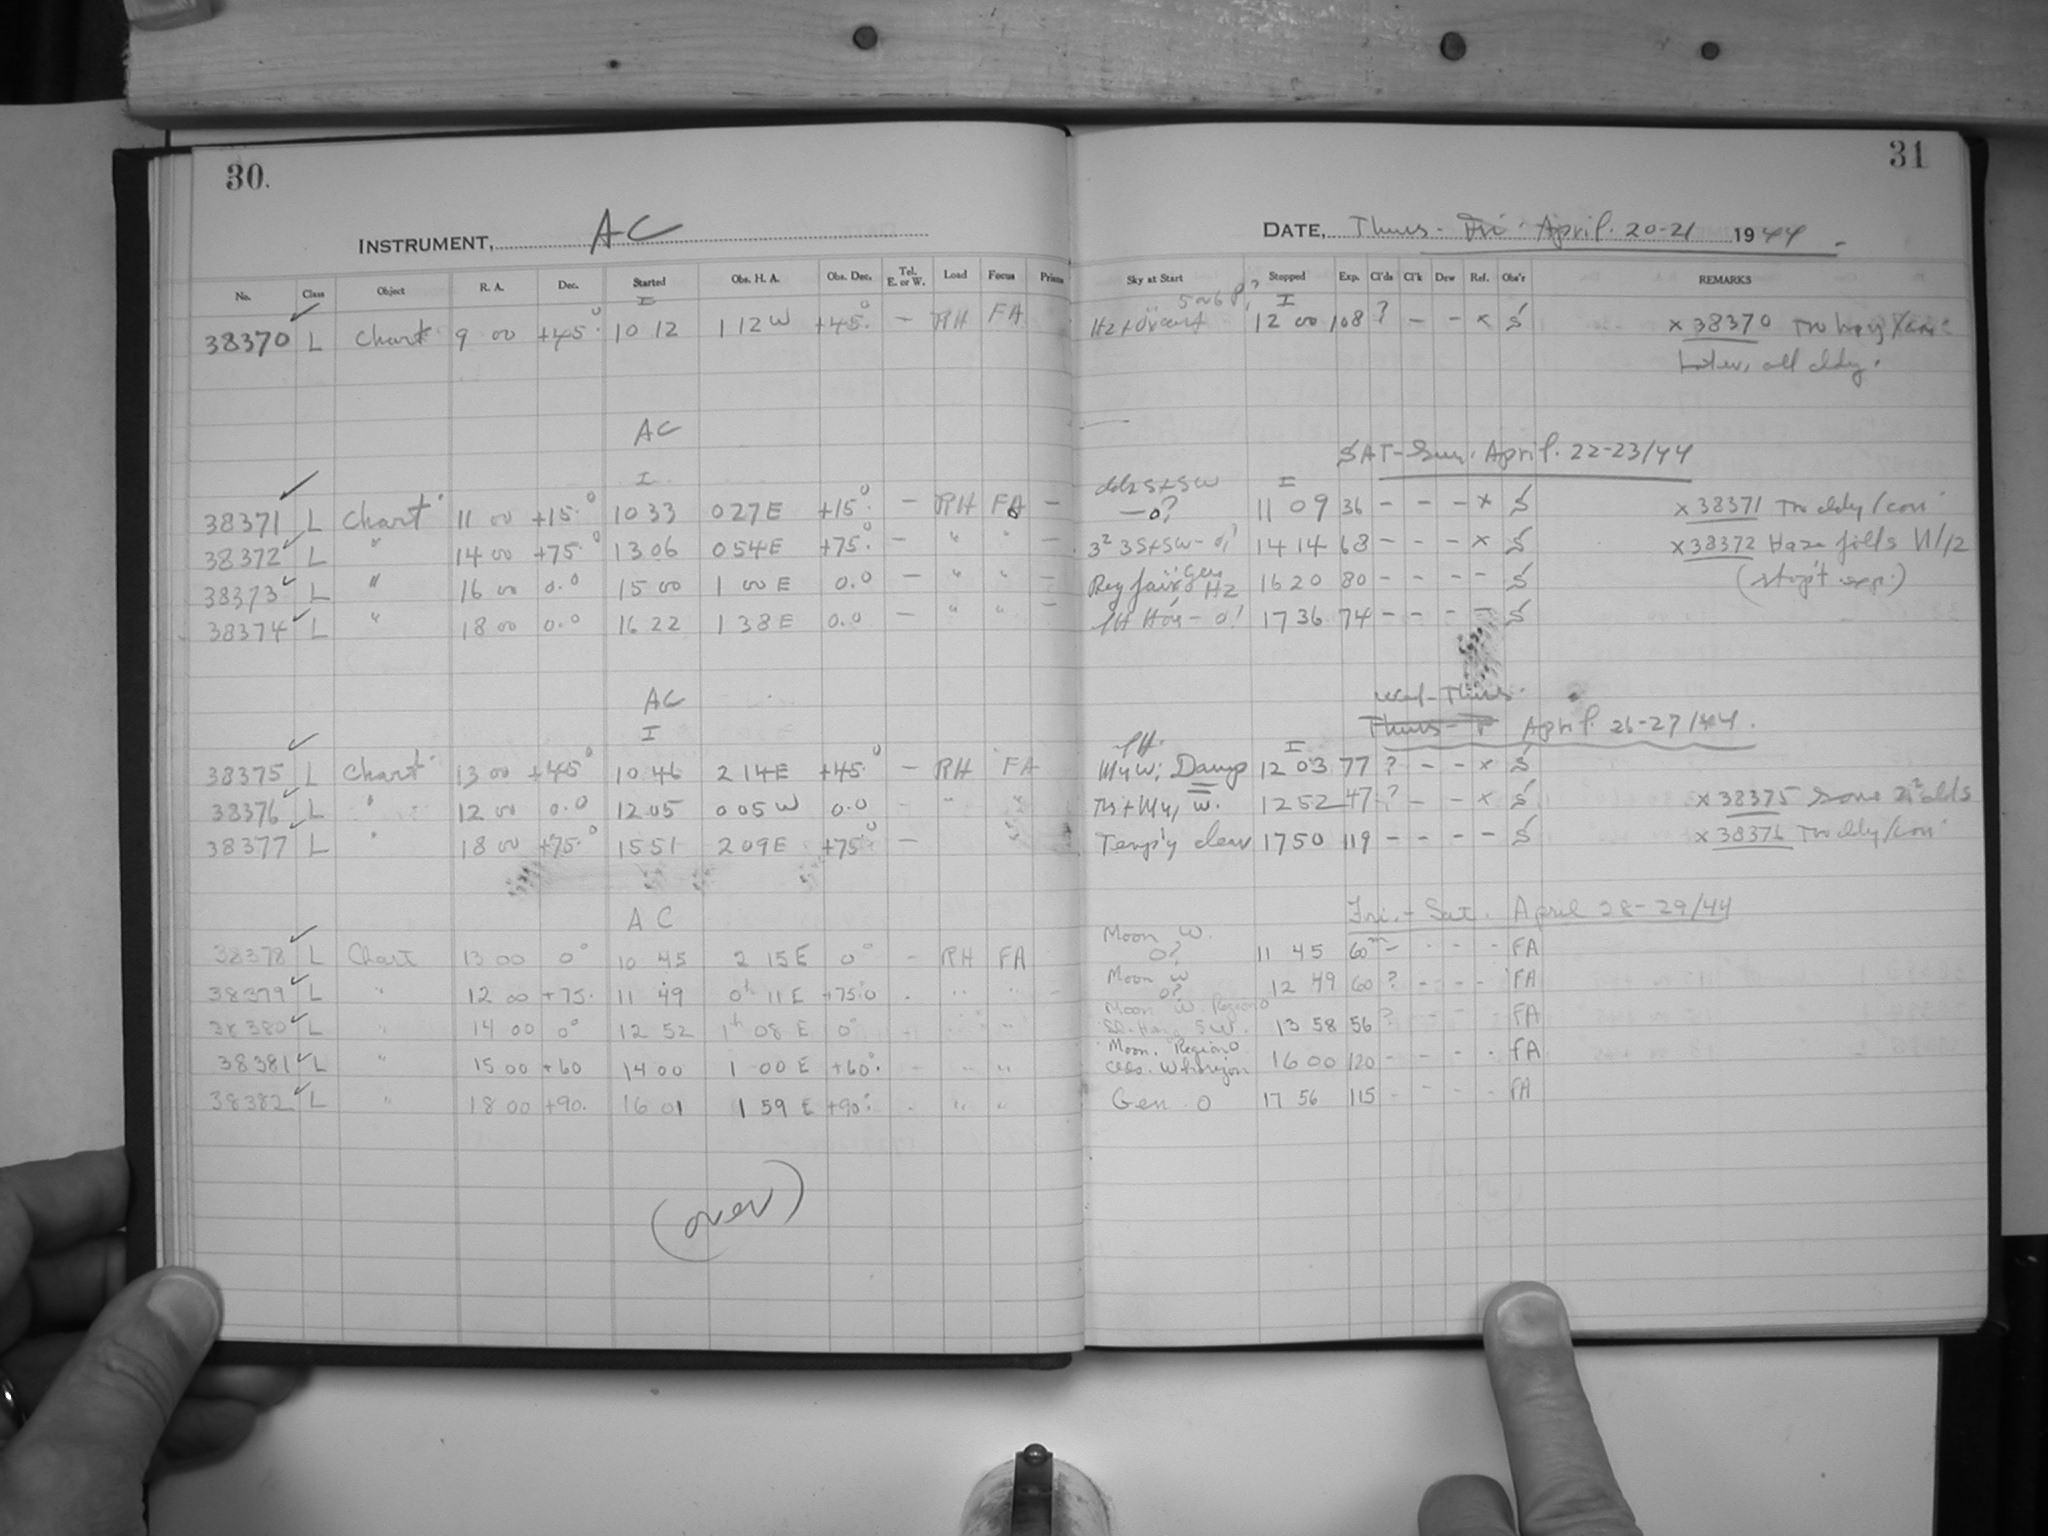 30.
INSTRUMENT, AC
No. Class Object R. A. Dec. Started Obs. H. A. Obs. Dec. Tel. E. or W. Load Focus Prism
I
38370 L Chart 9 00 +45.° 10 12 1 12 W +45.° – RH FA
AC
I
38371 L Chart 11 00 +15.° 10 33 0 27 E +15.° – RH FA –
38372 L " 14 00 +75.° 13 06 0 54 E +75.° – " " –
38373 L " 16 00 0.0 15 00 1 00 E 0.0 – " " –
38374 L " 18 00 0.0 16 22 1 38 E 0.0 – " " –
AC
I
38375 L Chart 13 00 +45° 10 46 2 14 E +45.° – RH FA
38376 L " 12 00 0.0 12 05 0 05 W 0.0 – "
38377 L " 18 00 +75.° 15 51 2 09 E +75° –
AC
38378 L Chart 13 00 0° 10 45 2 15 E 0° – RH FA
38379 L " 12 00 +75. 11 49 0h 11 E +75.0 . " " –
38380 L " 14 00 0° 12 52 1h 08 E 0° - " "
38381 L " 15 00 +60 14 00 1 00 E +60.° - " "
38382 L " 18 00 +90. 16 01 1 59 E +90.° - " "
(over)
31
DATE, Thurs - Fri. April. 20-21 1944
Sky at Start Stopped Exp. Cl'ds Cl'k Dew Ref. Obs'r REMARKS
5 or 6 I
Hz + 12 00 108 ? – – x S x 38370 Too hazy/con
Later, all cldy.
SAT-Sun. April. 22-23/44
clds S+SW I
–0? 11 09 36 – – – x S x 38371 Too cldy/con
3² 3 S+SW – 0? 14 14 68 – – – x S x 38372 Haze folls
Reg fair, Gen Hz 16 20 80 – – – – S (stop't exp.)
Hor – 0! 17 36 74 – – – – S
Wed-Thurs.
Thurs- April. 26-27/44.
I
W; Damp 12 03 77 ? – – x S
W. 12 52 47 ? – – x S x 38375 Some 2² clds
Temp'y clear 17 50 119 – – – – S x 38376 Too cldy/con
Fri. - Sat. April 28-29/44
Moon W.
0? 11 45 60m – - - - FA
Moon W
0? 12 49 60 ? - - - FA
Moon W. Region 0
SW. 13 58 56 ? - - FA
Moon. Region 0
W horizon 16 00 120 - - - . FA
Gen 0 17 56 115 - - - - FA